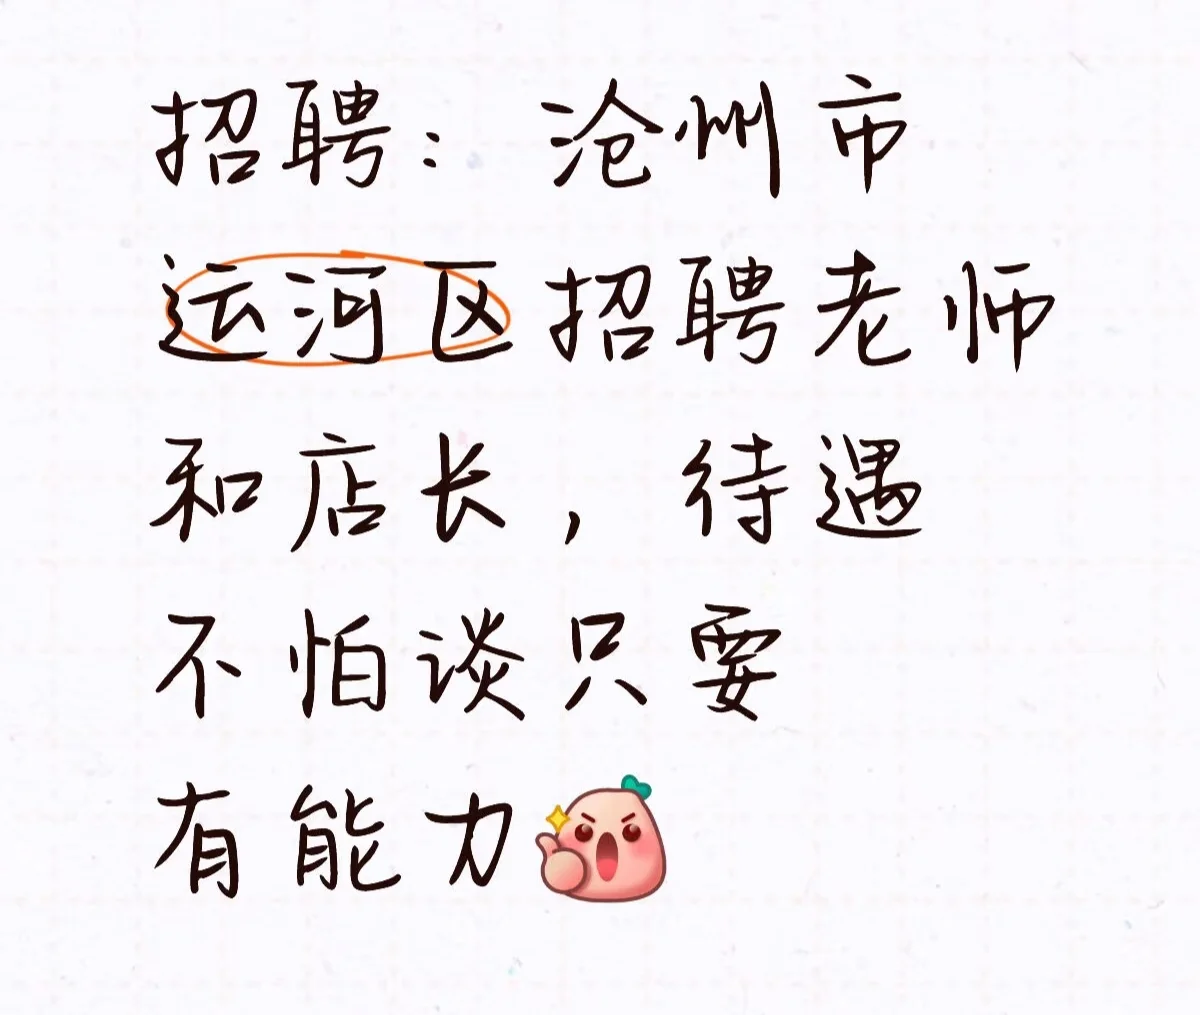 招聘：沧州市
运河区招聘老师
和店长，待遇
不怕谈只要
有能力